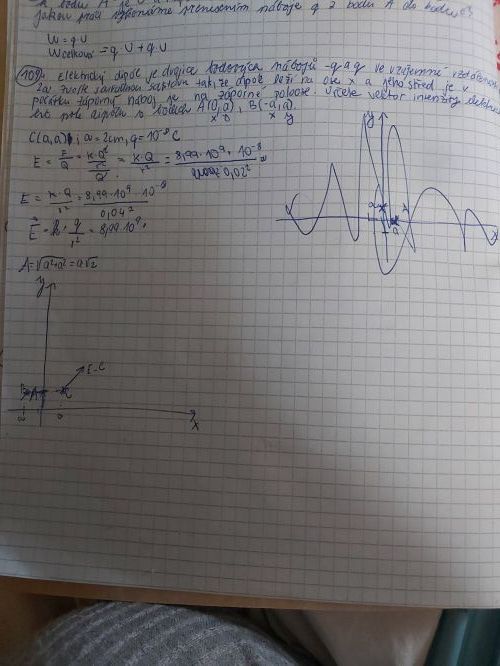 z bodu A
jakou práci vykonáme přenesením náboje q z bodu A do bodu
W = q U
Wcelková = q U + q U
109. Elektrický dipól je dvojice bodových nábojů -q a q ve vzájemné vzdálenosti
2a. Zvolte souřadnou soustavu tak, že dipól leží na ose x a jeho střed je v
počátku záporný náboj je na záporné poloose. Určete vektor intenzity
pole dipólu v bodech A(0,a), B(-a,a)
x y
C(a,a), a=2cm, q=10⁻⁸ C
E = F/Q = = k·Q/r² = 8,99·10⁹ · 10⁻⁸ / 0,02²
E = k·Q/r² = 8,99·10⁹ · 10⁻⁸ / 0,04²
E = k · q/r² = 8,99·10⁹ ·
A = √a²+a² = a√2
y
x
A
C
E-C
a
y
x
a
A